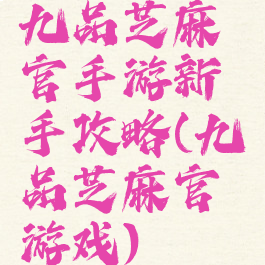 九品芝麻
官手游新
手攻略(九
品芝麻官
游戏)